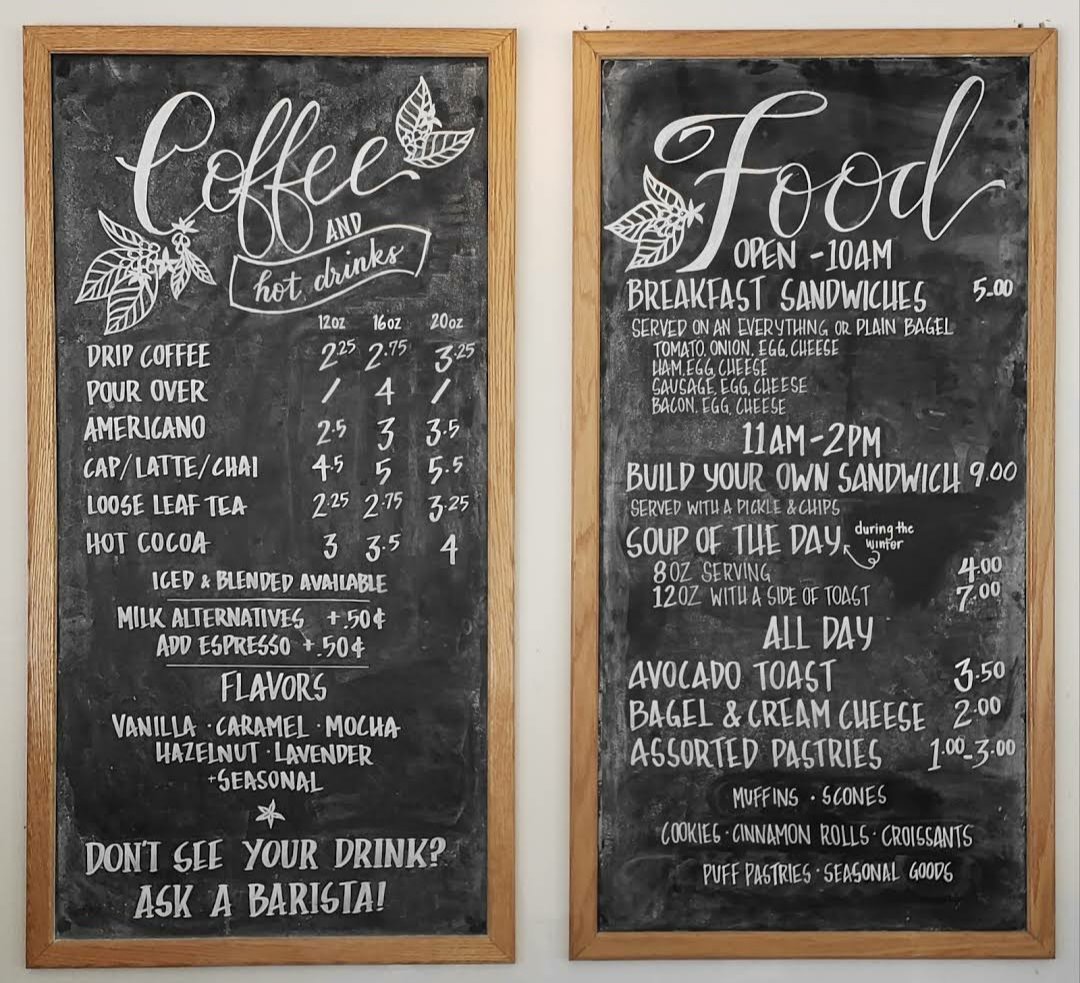 Coffee
AND
hot drinks
12oz 16oz 20oz
DRIP COFFEE 2.25 2.75 3.25
POUR OVER / 4 /
AMERICANO 2.5 3 3.5
CAP/LATTE/CHAI 4.5 5 5.5
LOOSE LEAF TEA 2.25 2.75 3.25
HOT COCOA 3 3.5 4
ICED & BLENDED AVAILABLE
MILK ALTERNATIVES +.50¢
ADD ESPRESSO +.50¢
FLAVORS
VANILLA · CARAMEL · MOCHA
HAZELNUT · LAVENDER
+SEASONAL
DON'T SEE YOUR DRINK?
ASK A BARISTA!
Food
OPEN -10AM
BREAKFAST SANDWICHES 5.00
SERVED ON AN EVERYTHING OR PLAIN BAGEL
TOMATO, ONION, EGG, CHEESE
HAM, EGG, CHEESE
SAUSAGE, EGG, CHEESE
BACON, EGG, CHEESE
11AM-2PM
BUILD YOUR OWN SANDWICH 9.00
SERVED WITH A PICKLE & CHIPS
SOUP OF THE DAY during the
winter
8OZ SERVING 4.00
12OZ WITH A SIDE OF TOAST 7.00
ALL DAY
AVOCADO TOAST 3.50
BAGEL & CREAM CHEESE 2.00
ASSORTED PASTRIES 1.00-3.00
MUFFINS · SCONES
COOKIES · CINNAMON ROLLS · CROISSANTS
PUFF PASTRIES · SEASONAL GOODS